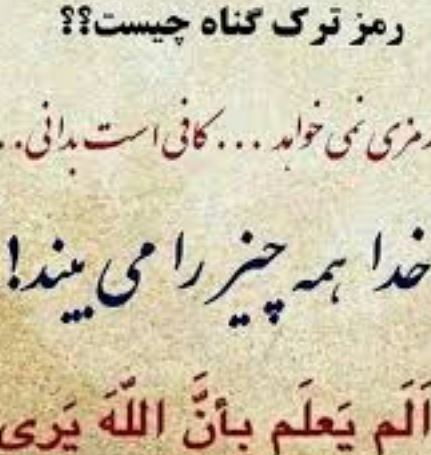 رمز ترک گناه چیست؟؟
رمزی نمی خواهد ... کافی است بدانی..
خدا همه چیز را می بیند!
اَلَم يَعلَم بأنَّ اللّهَ يَرى